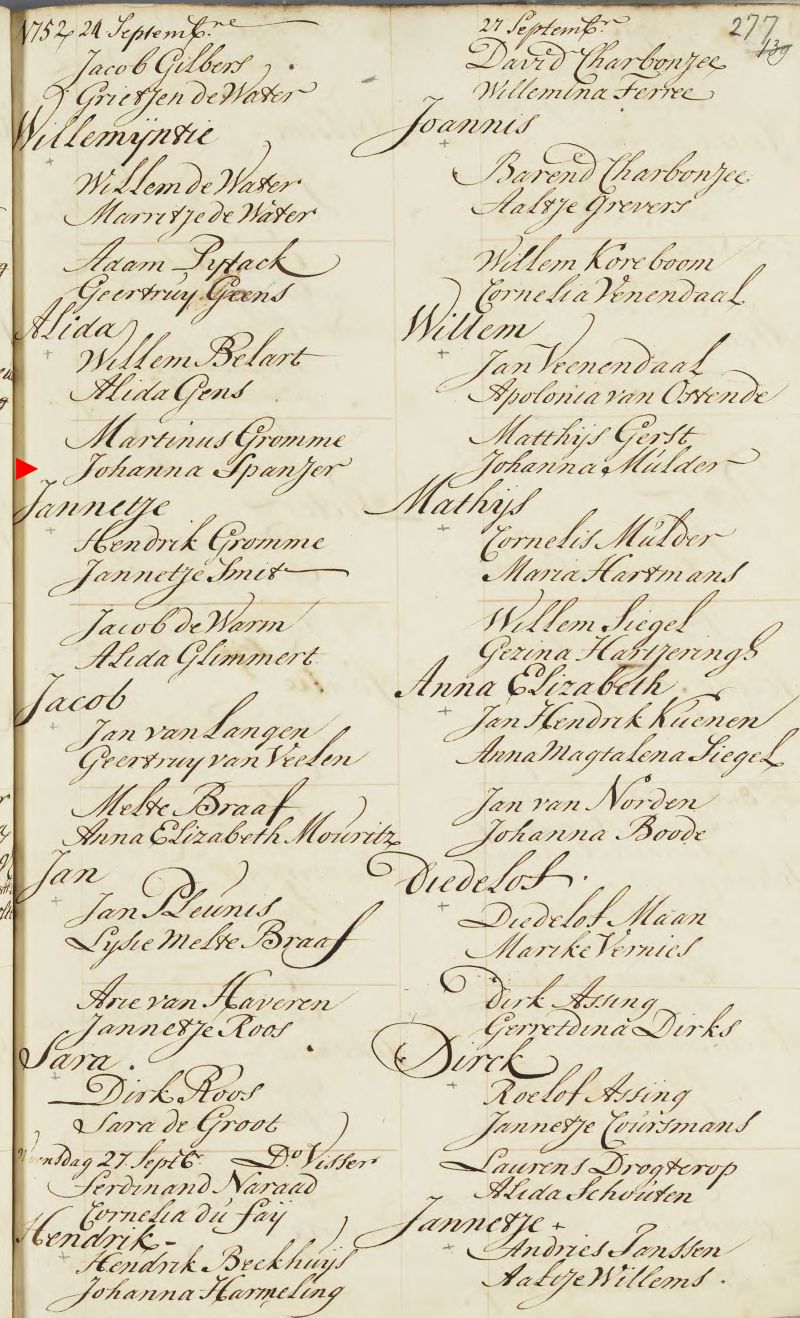 1752 24 Septembre
Jacob Gilbers
Grietjen de Water
Willemijntie
Willem de Water
Marritje de Water
Adam Pytack
Geertruy Geens
Alida
Willem Belart
Alida Gens
Martinus Gromme
Johanna Spanjer
Jannetje
Hendrik Gromme
Jannetje Smit
Jacob de Warm
Alida Glimmert
Jacob
Jan van Langen
Geertruy van Veelen
Melte Braaf
Anna Elizabeth Mouritz
Jan
Jan Pleunis
Lysie Melte Braaf
Arie van Haveren
Jannetje Roos
Sara
Dirk Roos
Sara de Groot
Woensdag 27 Septb. Do Visser
Ferdinand Naraad
Cornelia du Faij
Hendrik
Hendrik Beekhuijs
Johanna Harmeling
27 Septembr
277
139
David Charbonjee
Willemina Ferree
Joannis
Barend Charbonjee
Aaltje Grevers
Willem Koreboom
Cornelia Venendaal
Willem
Jan Veenendaal
Apolonia van Ostende
Matthijs Gerst
Johanna Mulder
Mathijs
Cornelis Mulder
Maria Hartmans
Willem Siegel
Gezina Hartjeringh
Anna Elizabeth
Jan Hendrik Kuenen
Anna Magtalena Siegel
Jan van Norden
Johanna Boode
Diedelof
Diedelof Maan
Marike Vernies
Dirk Assing
Gerretdina Dirks
Dirck
Roelof Assing
Jannetje Coursmans
Laurens Drogterop
Alida Schouten
Jannetje
Andries Janssen
Aaltje Willems